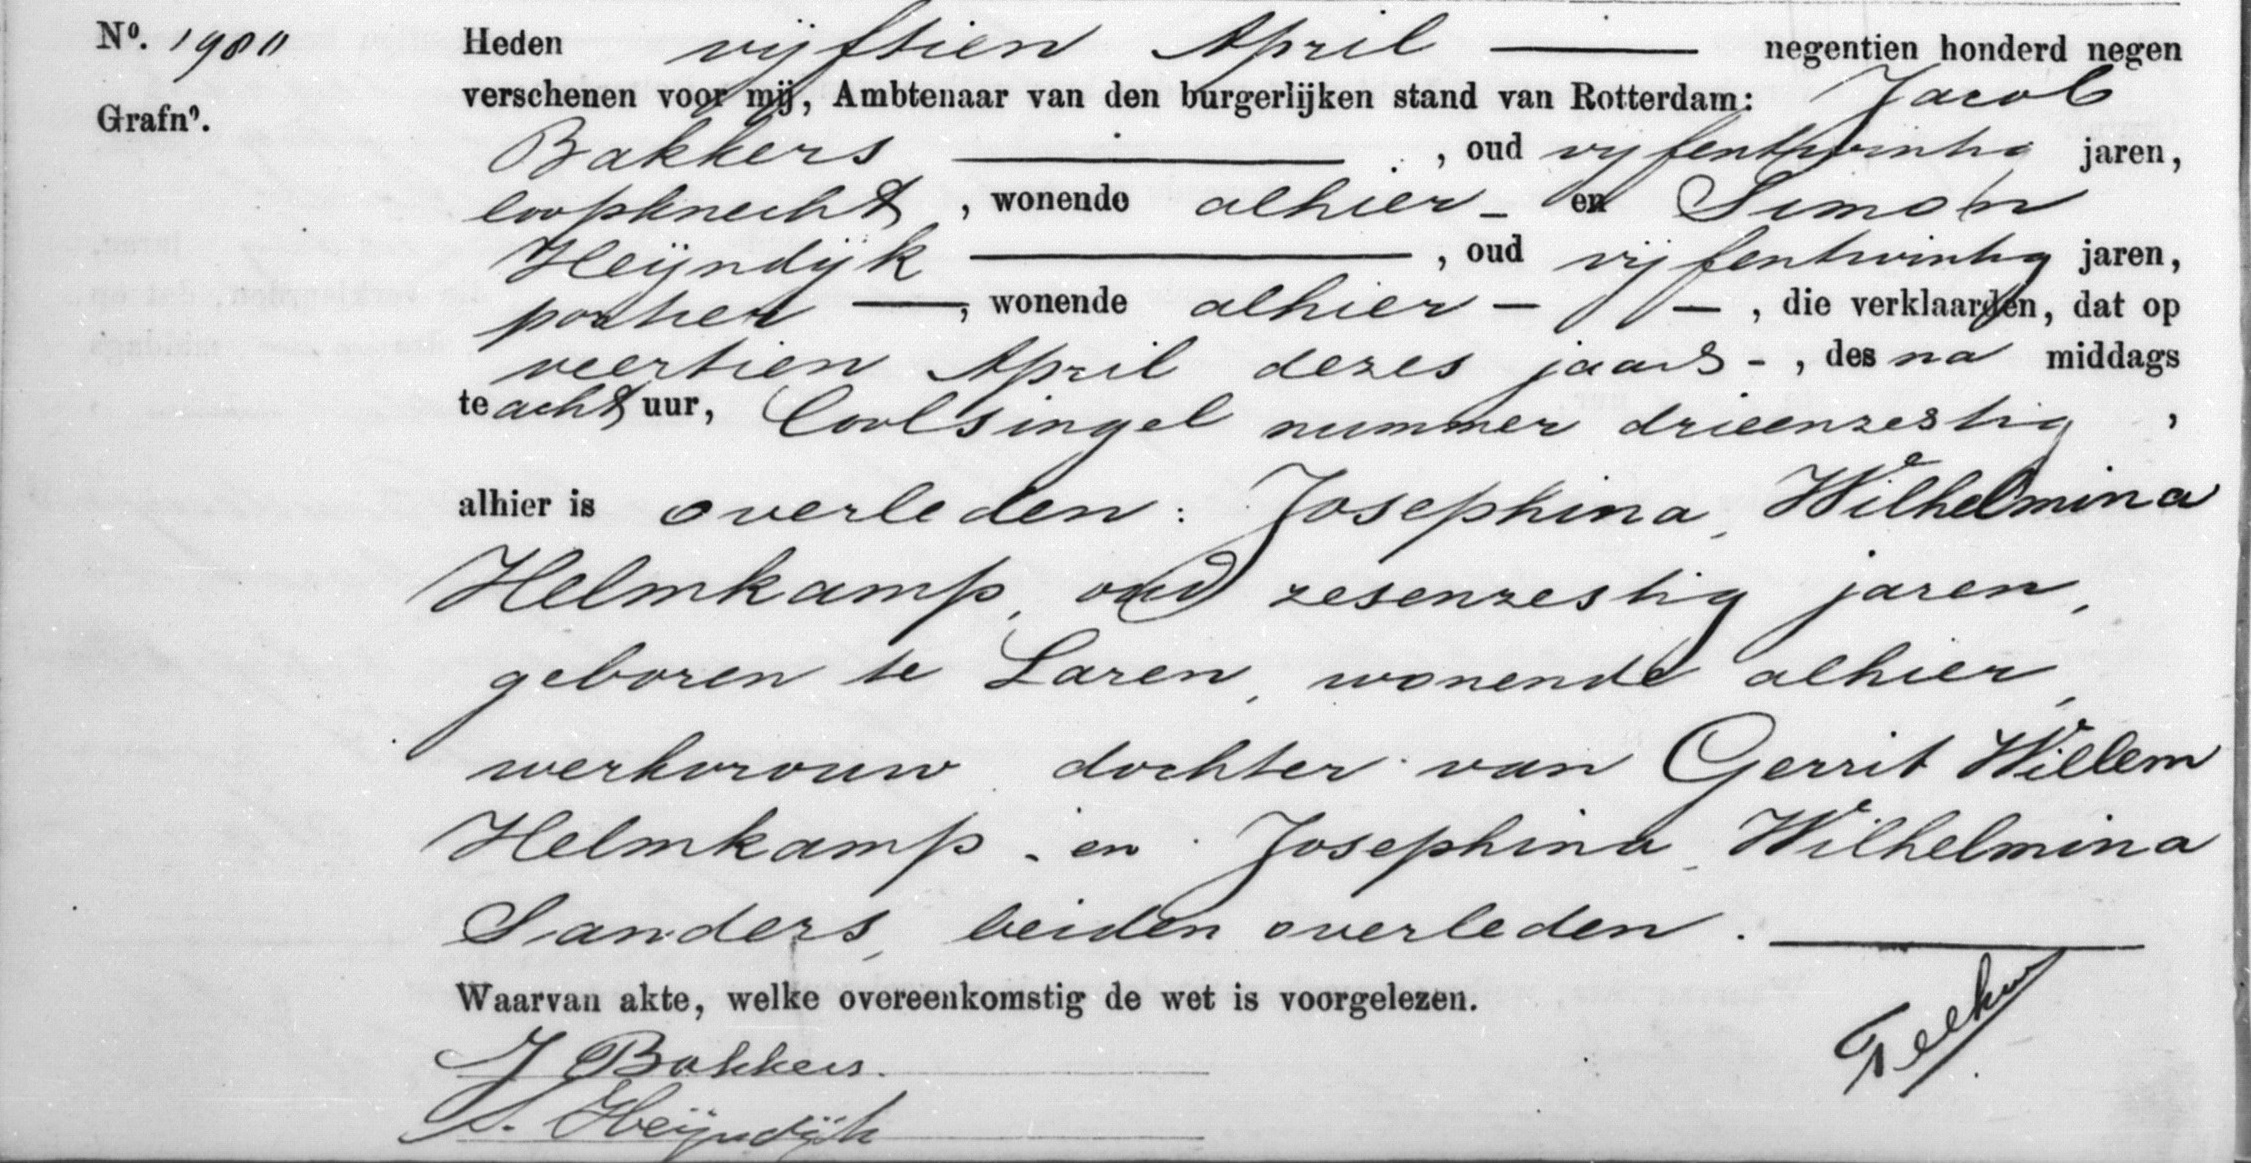 Nº. 1980
Heden vijftien April — negentien honderd negen
Grafnº.
verschenen voor mij, Ambtenaar van den burgerlijken stand van Rotterdam: Jacob
Bakkers —, oud vijfentwintig jaren,
loopknecht, wonende alhier - en Simon
Heijndijk —, oud vijfentwintig jaren,
portier —, wonende alhier — —, die verklaarden, dat op
veertien April dezes jaars -, des na middags
te acht uur, Coolsingel nummer drieenzestig,
alhier is overleden: Josephina Wilhelmina
Helmkamp, oud zesenzestig jaren,
geboren te Laren, wonende alhier,
werkvrouw dochter van Gerrit Willem
Helmkamp - en Josephina Wilhelmina
Sanders, beiden overleden. —
Waarvan akte, welke overeenkomstig de wet is voorgelezen.
J Bakkers.
S. Heijndijk